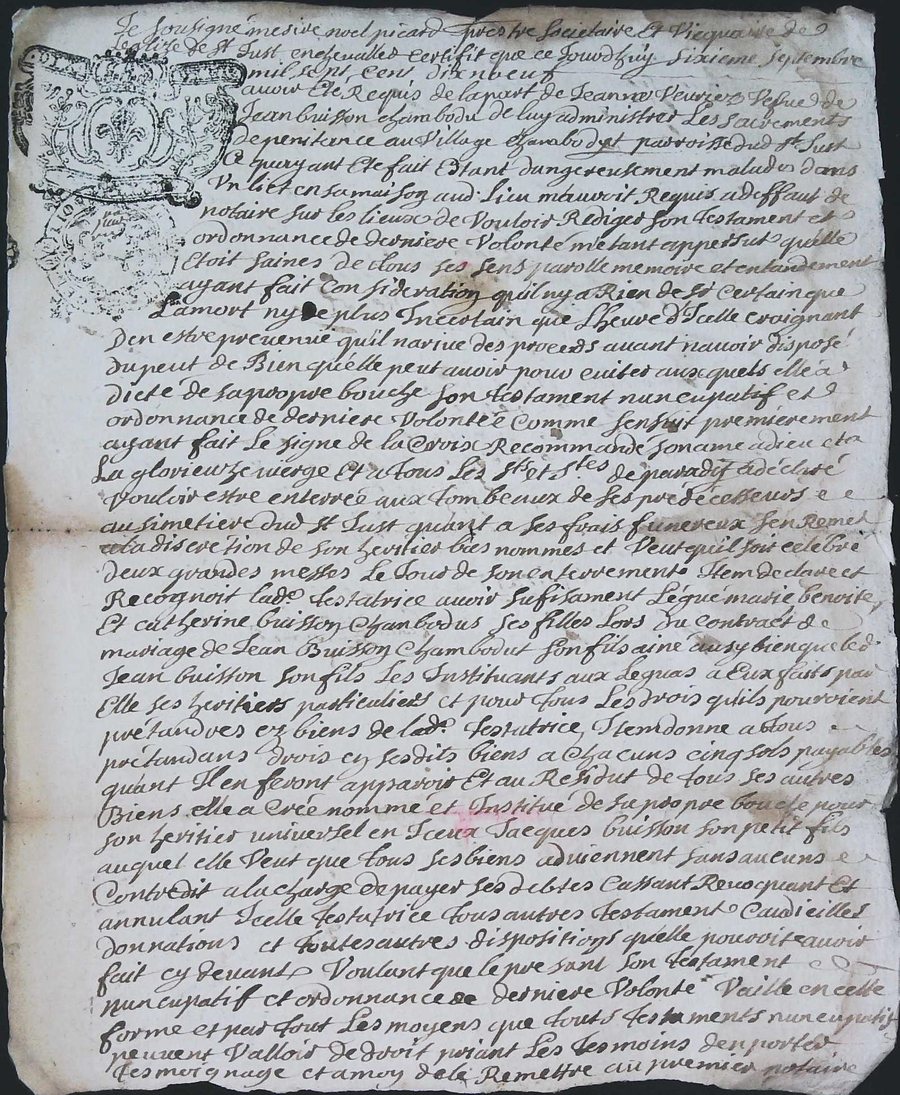 Je sousigné mesire noel picard prestre Societaire Et Vicquaire de
l'eglise de st Just enchevallet Certifit que ce Jourdhuy sixieme septembre
mil sept cent dix neuf
avoir Ete Requis de la part de Jeanne Veuriez Vefue de
Jean buisson chambodu de luy administrer Les sacrements
de penitence au Village chambodut parroisse dud st Just
Ce qu'ayant Ete fait Estant dangereusement malade dans
Vn lict en sa maison aud Lieu m'auroit Requis a deffaut de
notaire sur les lieux de Vouloir Rediger son testament et
ordonnance de derniere Volonté metant appersut qu'elle
Etoit saines de tous ses sens parolle memoire et entandement
ayant fait Consideration qu'il ny a Rien de sy certain que
La mort ny de plus Incertain que L'heure d'Icelle craignant
Den estre preuenue qu'il n'arive des proceds auant nauoir disposé
du peut de Bien qu'elle peut avoir pour euiter auxquels elle a
dicté de sa propre bouche son testament nuncupatif et
ordonnance de derniere Volontée Comme sensuit premierement
ayant fait Le signe de la Croix Recommandé son ame a dieu et a
La glorieuze vierge Et a tous Les Sts et Stes de paradis a declaré
Vouloir estre enterrée aux tombeaux de ses predecesseurs
au simetiere dud st Just quant a ses frais funereux s'en Remet
a la discretion de son heritier bas nommes et Veut qu'il soit celebré
deux grandes messes Le Jour de son enterrement Item declare et
Recognoit lade testatrice auoir sufisament Legué marie benoite,
Et catherine buisson Chambodus ses filles Lors du contract de
mariage de Jean Buisson Chambodut son fils ainé ausy bien que led
Jean buisson son fils Les Instituants aux Leguas a Eux faits par
Elle ses heritiers particuliers et pour tous Les drois qu'ils pouroient
prétandres ez biens de lade testatrice, Item donne a tous
prétandans drois ey sesdits biens a chacuns cinq sols payables
quant Il en feront apparoir Et au Residut de tous ses autres
Biens elle a Créé nommé et Institué de sa propre bouche pour
son heritier universel en Iceux Jacques buisson son petit fils
auquel elle Veut que tous ses biens adviennent sans aucuns
Contredit a la charge de payer ses debtes Cassant Revocquant Et
annulant Icelle testatrice tous autres testament Caudicilles
donnations et toutes autres dispositions quelle pouroit avoir
fait cy devant Voulant que le presant son testament
nuncupatif et ordonnance de derniere Volonté Vaille en cette
forme et par tout Les moyens que touts testaments nuncupatif
peuuent Vallois de droit priant Les tesmoins d'en porter
tesmoignage et a moy de le Remettre au premier notaire